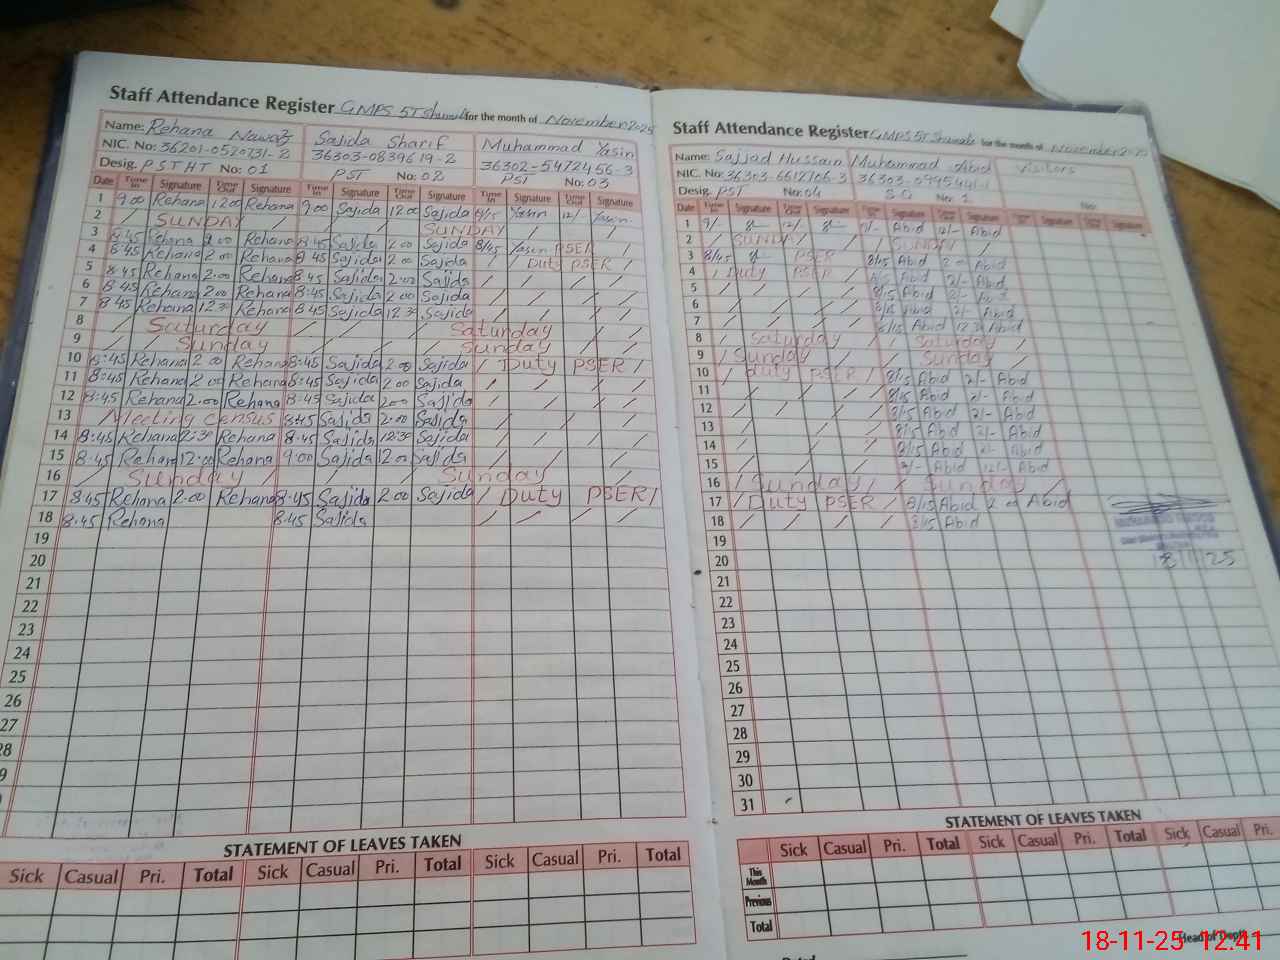 Staff Attendance Register GMPS 5T Shumali for the month of November 2025
Name: Rehana Nawaz Sajida Sharif Muhammad Yasin
NIC. No: 36201-0520731-2 36303-0839619-2 36302-5472456-3
Desig. PSTHT No: 01 PST No: 02 PST No: 03
Date Time In Signature Time Out Signature Time In Signature Time Out Signature Time In Signature Time Out Signature
1 9 00 Rehana 12 00 Rehana 9 00 Sajida 12 00 Sajida Yasin 12/- Yasin
2 / SUNDAY / / / SUNDAY / / / /
3 8:45 Rehana 2 00 Rehana 8 45 Sajida 2 00 Sajida 8/45 Yasin PSER /
4 8:45 Rehana 2 00 Rehana 8 45 Sajida 2 00 Sajida / Duty PSER /
5 8:45 Rehana 2:00 Rehana 8 45 Sajida 2:00 Sajida / / / /
6 8:45 Rehana 2 00 Rehana 8:45 Sajida 2 00 Sajida / / / /
7 8 45 Rehana 12 30 Rehana 8:45 Sajida 12 30 Sajida / / / /
8 / Saturday / / / Saturday / /
9 / Sunday / / / Sunday / /
10 8:45 Rehana 2 00 Rehana 8:45 Sajida 2 00 Sajida / Duty PSER /
11 8:45 Rehana 2 00 Rehana 8:45 Sajida 2 00 Sajida / / / /
12 8:45 Rehana 2:00 Rehana 8:45 Sajida 2 00 Sajida / / / /
13 / Meeting census 8:45 Sajida 2:00 Sajida / / / /
14 8:45 Rehana 12:30 Rehana 8:45 Sajida 12:30 Sajida / / / /
15 8:45 Rehana 12:00 Rehana 9:00 Sajida 12 00 Sajida / / / /
16 / Sunday / / / Sunday / /
17 8 45 Rehana 2:00 Rehana 8:45 Sajida 2 00 Sajida / Duty PSER /
18 8:45 Rehana 8:45 Sajida / / / /
19
20
21
22
23
24
25
26
27
28
9
STATEMENT OF LEAVES TAKEN
Sick Casual Pri. Total Sick Casual Pri. Total Sick Casual Pri. Total
Staff Attendance Register GMPS 5T Shumali for the month of November 2025
Name: Sajjad Hussain Muhammad Abid Visitors
NIC. No: 36303-6612706-3
Desig. PST No: 04 No: 1 No:
Date Time In Signature Time Out Signature Time In Signature Time Out Signature Signature Signature
1 9/- 12/- 9/- Abid 12/- Abid
2 / SUNDAY / / SUNDAY /
3 8/45 PSER 8/15 Abid 2 00 Abid
4 / Duty PSER / 8/15 Abid 2/- Abid
5 / / / / 8/15 Abid 2/- Abid
6 / / / / 8/15 Abid 2/- Abid
7 / / / / 8/15 Abid 12 30 Abid
8 / Saturday / / Saturday /
9 / Sunday / / Sunday /
10 / Duty PSER / 8/15 Abid 2/- Abid
11 / / / / 8/15 Abid 2/- Abid
12 / / / / 8/15 Abid 2/- Abid
13 / / / / 8/15 Abid 2/- Abid
14 / / / / 8/15 Abid 2/- Abid
15 / / / / 9/- Abid 12/- Abid
16 / Sunday / / Sunday /
17 / Duty PSER / 8/15 Abid 2 00 Abid
18 / / / / 8/15 Abid
19
20 18/11/25
21
22
23
24
25
26
27
28
29
30
31
STATEMENT OF LEAVES TAKEN
Sick Casual Pri. Total Sick Casual Pri. Total Sick Casual Pri.
This Month
Previous
Total
Head of Deptt.
18-11-25 12:41